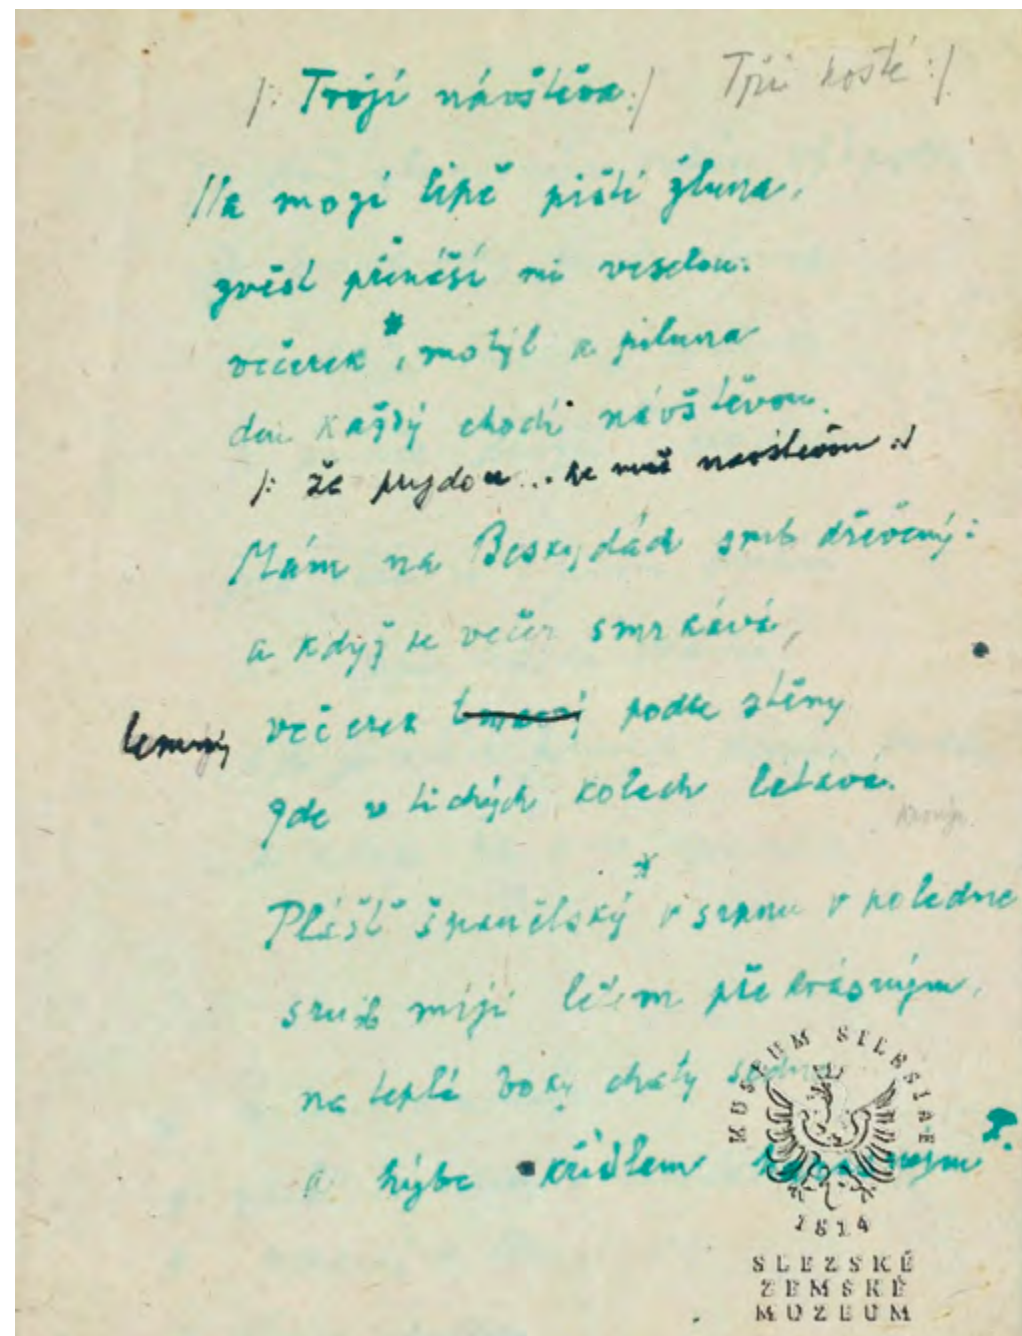 /: Trojí návštěva :/ Tři hosté :/
Na mogí lípě piští žluna,
zvěst přináší mi veselou:
večerek*, motýl a piluna
den každý chodí návštěvou.
/: že přijdou ... ke mně návštěvou :/
Mám na Beskydách srub dřevěný:
a když se večer smrkává,
temný večerek podle stěny
gde v tichých kolech létává.
Plášť španělský* v srpnu v poledne
srub míjí letem překrásným,
na teplé boky chaty sedne
a hýbe křídlem
MUSEUM SILESIAE
1814
SLEZSKÉ
ZEMSKÉ
MUZEUM